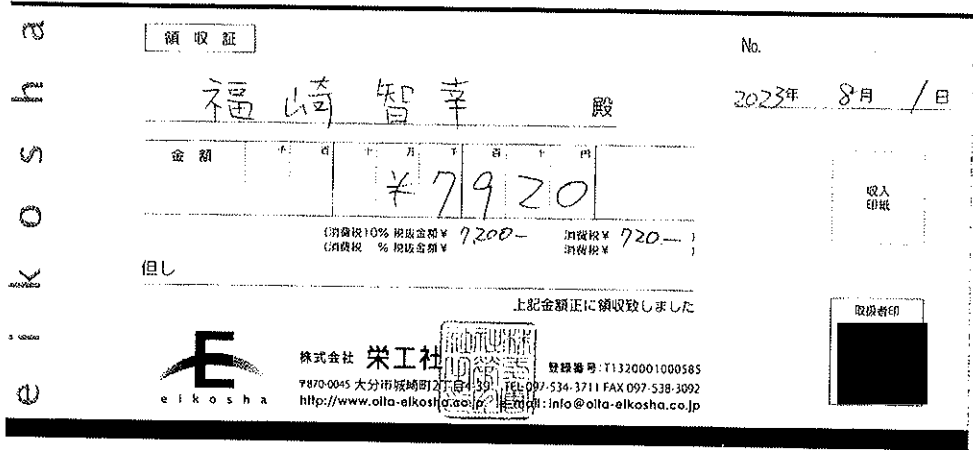 eikosha
領収証
No.
福崎智幸 殿
2023年 8月 1日
金額 千 百 十 万 千 百 十 円
¥7920
収入
印紙
(消費税10% 税抜金額¥ 7,200- 消費税¥ 720- )
(消費税 % 税抜金額¥ 消費税¥ )
但し
上記金額正に領収致しました
取扱者印
E
eikosha
株式会社 栄工社
登録番号:T1320001000585
〒870-0045 大分市城崎町2丁目4-39 TEL 097-534-3711 FAX 097-538-3092
http://www.oita-eikosha.co.jp e-mail:info@oita-eikosha.co.jp